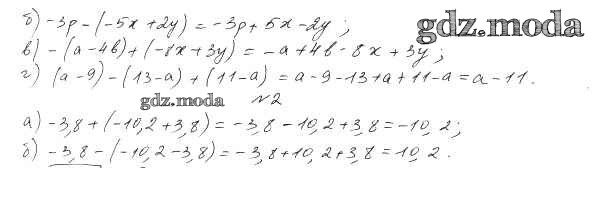 б) -3p - (-5x + 2y) = -3p + 5x - 2y ;
gdz.moda
в) - (a - 4b) + (-8x + 3y) = -a + 4b - 8x + 3y ;
г) (a - 9) - (13 - a) + (11 - a) = a - 9 - 13 + a + 11 - a = a - 11 .
gdz.moda
№2
а) -3,8 + (-10,2 + 3,8) = -3,8 - 10,2 + 3,8 = -10,2 ;
б) -3,8 - (-10,2 - 3,8) = -3,8 + 10,2 + 3,8 = 10,2 .